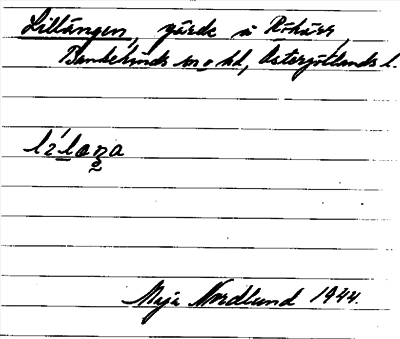 Lillängen, gärde å Röhäss,
Bankekinds sn o hd, Östergötlands l.
Maja Nordlund 1944.